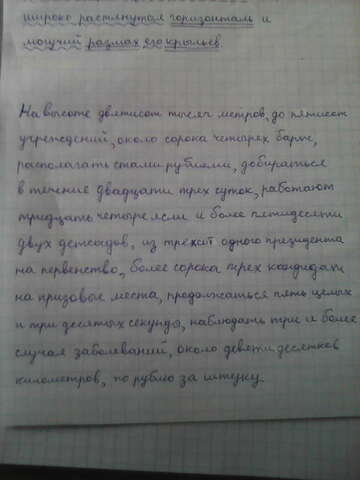 широко растянутая горизонталь и
мощный размах его крыльев.
На высоте двятисот тысяч метров, до пятисот
учреждений, около сорока четырёх барж,
располагать стами рублями, добираться
в течение двадцати трех суток, работают
тридцать четыре ясли и более пятидесяти
двух детсадов, из трёхсот одного президента
на первенство, более сорока трех кандидат
на призовые места, продолжаться пять целых
и три десятых секунды, наблюдать три и более
случая заболеваний, около девяти десятков
километров, по рублю за штуку.